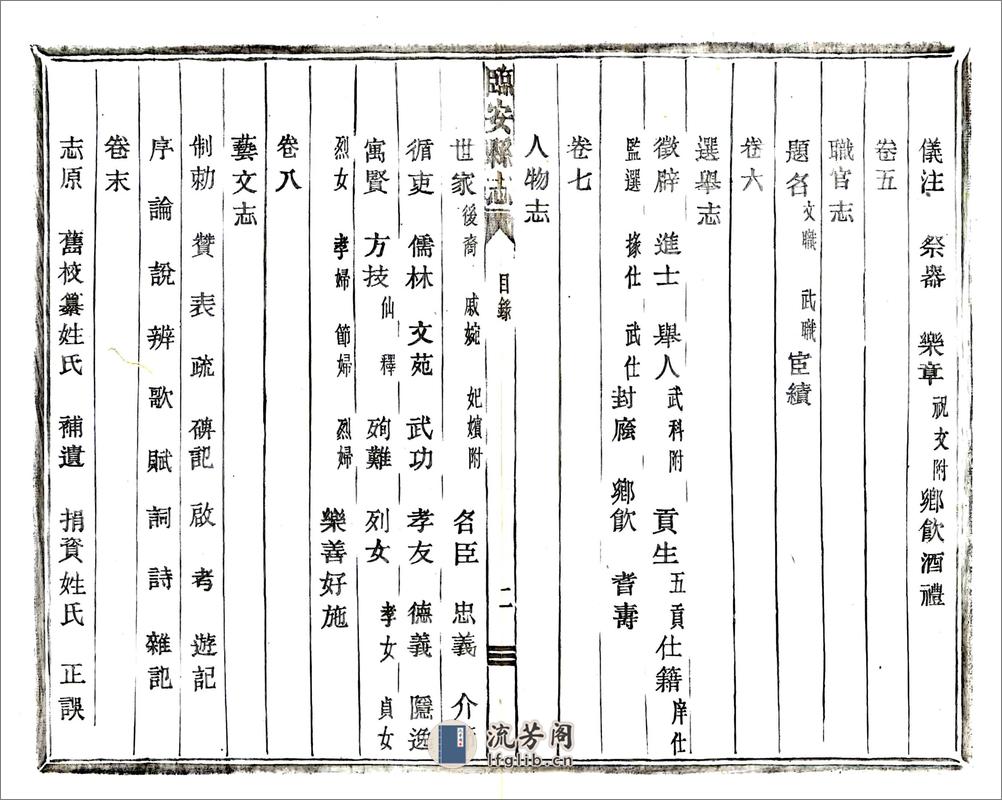 儀注 祭器 樂章 祝文附 鄉飮酒禮
卷五
職官志
題名 文職 武職 宦績
卷六
選舉志
徵辟 進士 舉人 武科附 貢生 五貢 仕籍 庠仕
監選 掾仕 武仕 封廕 鄉飮 耆壽
卷七
人物志
臨安縣志 目錄 二
世家 後裔 戚婉 妃嬪附 名臣 忠義 介
循吏 儒林 文苑 武功 孝友 德義 隱逸
寓賢 方技 仙 釋 殉難 列女 孝女 貞女
烈女 孝婦 節婦 烈婦 樂善好施
卷八
藝文志
制勅 贊 表 疏 碑記 啟 考 遊記
序 論 說 辨 歌 賦 詞 詩 雜記
卷末
志原 舊校纂姓氏 補遺 捐資姓氏 正誤
流芳阁
lfglib.cn